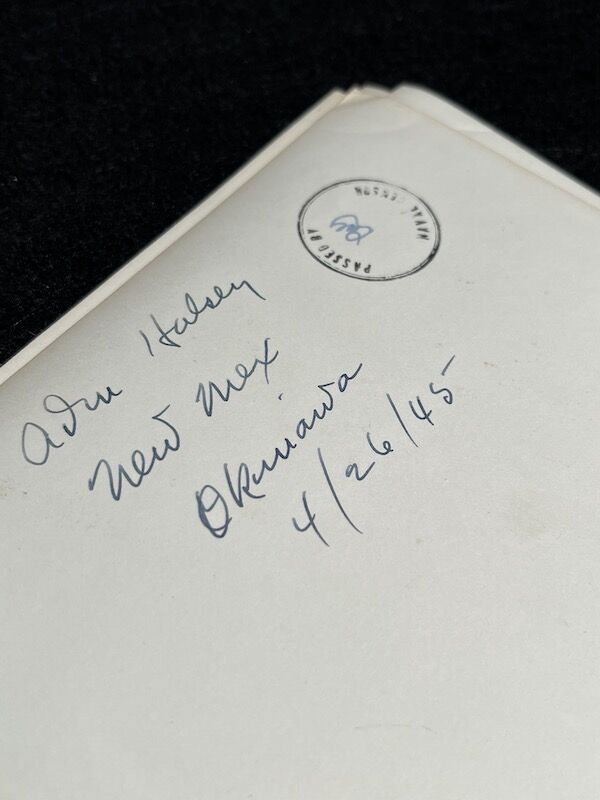 PASSED BY
NAVAL CENSOR
Adm Halsey
New Mex
Okinawa
4/26/45